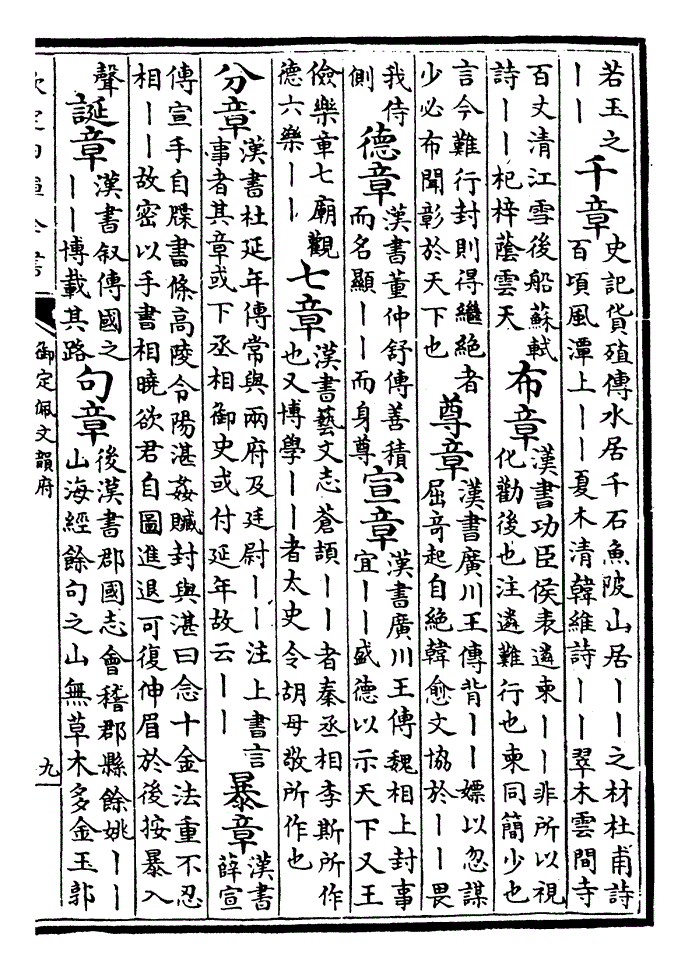 若玉之
｜｜
千章
史記貨殖傳水居千石魚陂山居｜｜之材杜甫詩
百頃風潭上｜｜夏木清韓維詩｜｜翠木雲間寺
百丈清江雪後船蘇軾
詩｜｜杞梓蔭雲天
布章
漢書功臣侯表遴柬｜｜非所以視
化勸後也注遴難行也柬同簡少也
言今難行封則得繼絶者
少必布聞彰於天下也
尊章
漢書廣川王傳背｜｜嫖以忽謀
屈竒起自絶韓愈文協於｜｜畏
我侍
側
德章
漢書董仲舒傳善積
而名顯｜｜而身尊
宣章
漢書廣川王傳魏相上封事
宜｜｜盛德以示天下又王
儉樂章七廟觀
德六樂｜｜
七章
漢書藝文志蒼頡｜｜者秦丞相李斯所作
也又博學｜｜者太史令胡母敬所作也
分章
漢書杜延年傳常與兩府及廷尉｜｜注上書言
事者其章或下丞相御史或付延年故云｜｜
暴章
漢書
薛宣
傳宣手自牒書條高陵令陽湛姦贓封與湛曰念十金法重不忍
相｜｜故密以手書相曉欲君自圖進退可復伸眉於後按暴入
聲
誕章
漢書叙傳國之
｜｜博載其路
句章
後漢書郡國志會稽郡縣餘姚｜｜
山海經餘句之山無草木多金玉郭
欽定四庫全書
御定佩文韻府
九